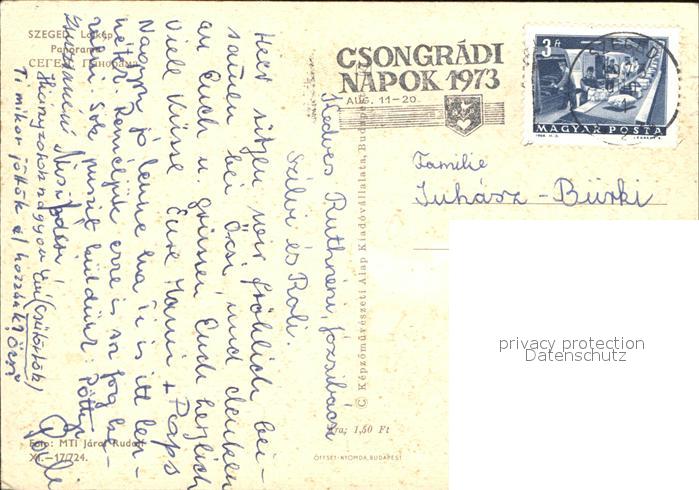 SZEGED Látkép
Panorama
СЕГЕД Панорама
CSONGRÁDI
NAPOK 1973
AUG. 11-20.
3 Ft
MAGYAR POSTA
Familie
Juhász-Bürki
Kedves Ruthnéni, Józsibácsi
Szilvi és Roli.
Heut sitzen wir fröhlich bei-
samen bei Öcsi und denken
an Euch u. grüssen Euch herzlich
Viele Küsse Eure Mami + Paps
Nagyon jó lenne ha Ti is itt len-
nétek Reméljük erre is sor fog ke-
rülni Sok puszit küldünk: Pötty
Ti mikor jöttök el hozzánk? Öcsi
© Képzőművészeti Alap Kiadóvállalata, Budapest
Ára: 1,50 Ft
OFFSET-NYOMDA, BUDAPEST
Foto: MTI Járai Rudolf
XI.-17/724.
privacy protection
Datenschutz